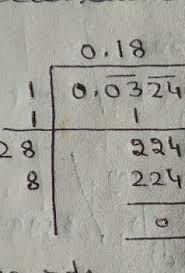 0.18
1 0.03 24
1 1
28 224
8 224
0